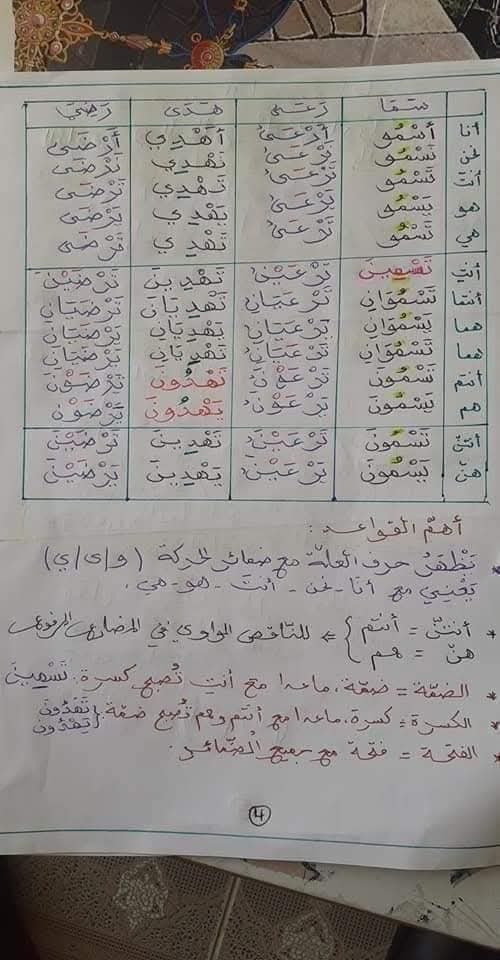 سَمَا رَعَى هَدَى رَضِيَ
أنا أَسْمُو أَرْعَى أَهْدِي أَرْضَى
نحن نَسْمُو نَرْعَى نَهْدِي نَرْضَى
أنتَ تَسْمُو تَرْعَى تَهْدِي تَرْضَى
هو يَسْمُو يَرْعَى يَهْدِي يَرْضَى
هي تَسْمُو تَرْعَى تَهْدِي تَرْضَى
أنتِ تَسْمِينَ تَرْعَيْنَ تَهْدِينَ تَرْضَيْنَ
أنتما تَسْمُوَانِ تَرْعَيَانِ تَهْدِيَانِ تَرْضَيَانِ
هما يَسْمُوَانِ يَرْعَيَانِ يَهْدِيَانِ يَرْضَيَانِ
هما تَسْمُوَانِ تَرْعَيَانِ تَهْدِيَانِ تَرْضَيَانِ
أنتم تَسْمُونَ تَرْعَوْنَ تَهْدُونَ تَرْضَوْنَ
هم يَسْمُونَ يَرْعَوْنَ يَهْدُونَ يَرْضَوْنَ
أنتنّ تَسْمُونَ تَرْعَيْنَ تَهْدِينَ تَرْضَيْنَ
هنّ يَسْمُونَ يَرْعَيْنَ يَهْدِينَ يَرْضَيْنَ
أهمّ القواعد:
* تَظْهَرُ حرف العلّة مع ضمائر الحركة (و/ى/ي)
يَعْنِي مع أنا - نحن - أنتَ - هو - هي.
* أنتنّ = أنتم } => للنّاقص الواوي في المضارع المرفوع
هنّ = هم
* الضمّة = ضمّة، ماعدا مع أنتِ تُصبح كسرة. تَسْمِينَ
* الكسرة = كسرة، ماعدا مع أنتم وهم تُصبح ضمّة. { تَهْدُونَ
يَهْدُونَ
* الفتحة = فتحة مع جميع الضّمائر.
4